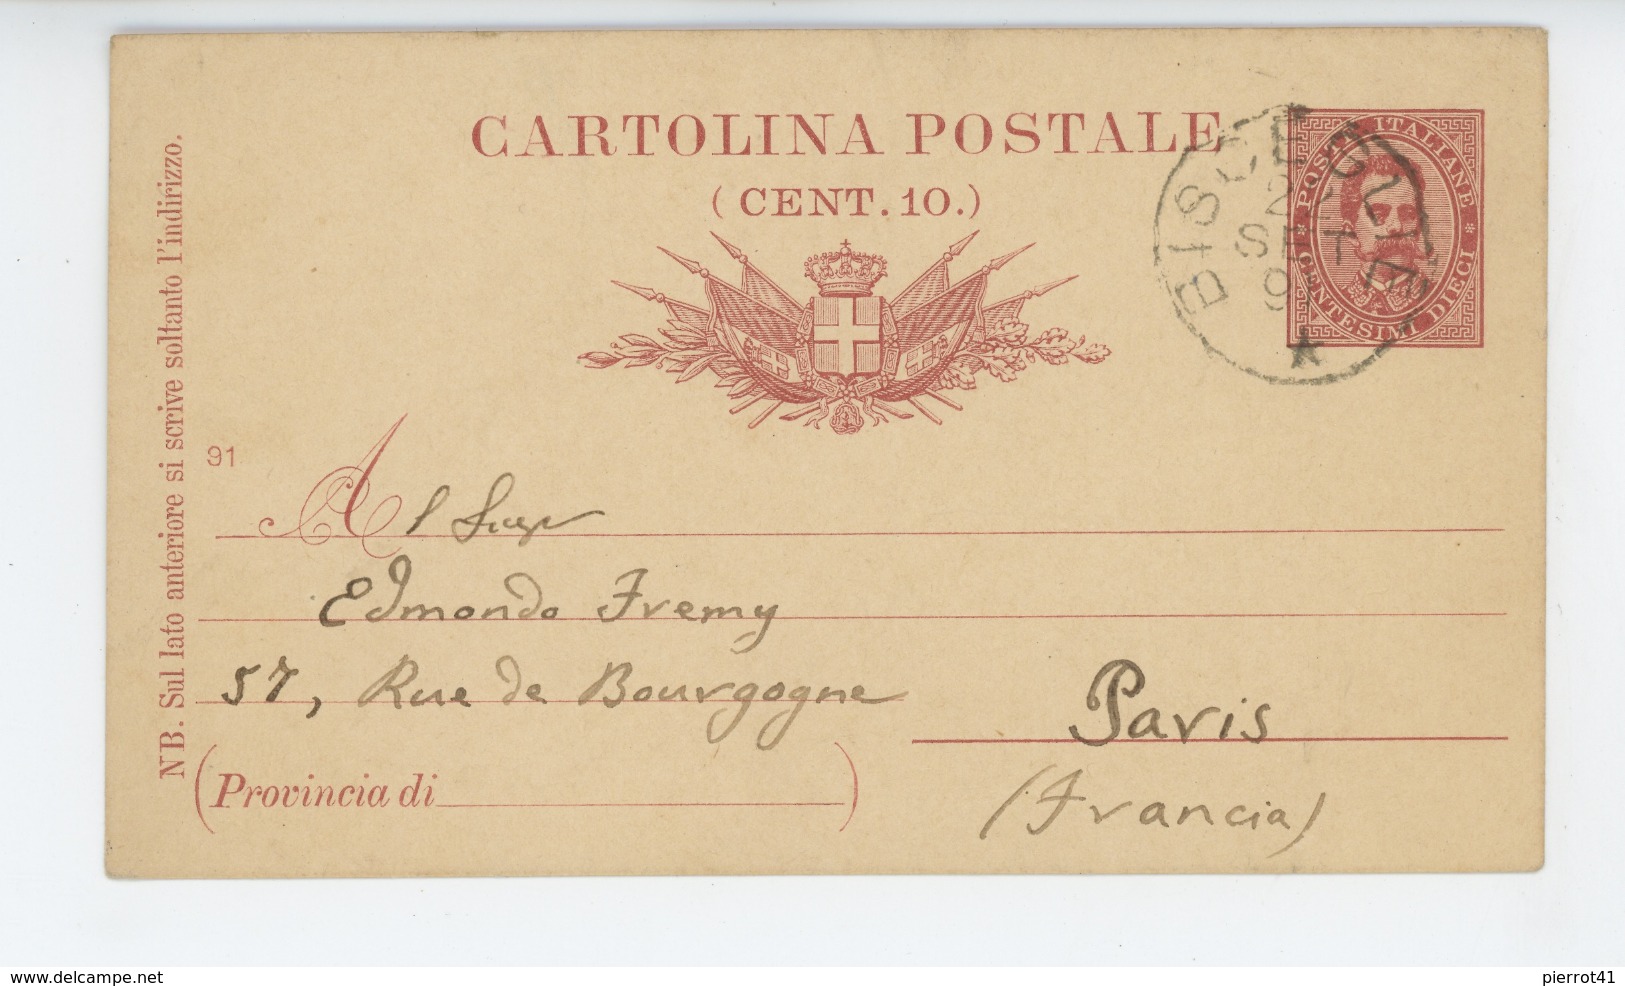 CARTOLINA POSTALE
(CENT. 10.)
POSTE ITALIANE
* CENTESIMI DIECI *
BISCEGLIE
SET
NB. Sul lato anteriore si scrive soltanto l'indirizzo.
91
Al
Edmondo Fremy
57, Rue de Bourgogne
Paris
(Provincia di
)
(Francia)
www.delcampe.net
pierrot41